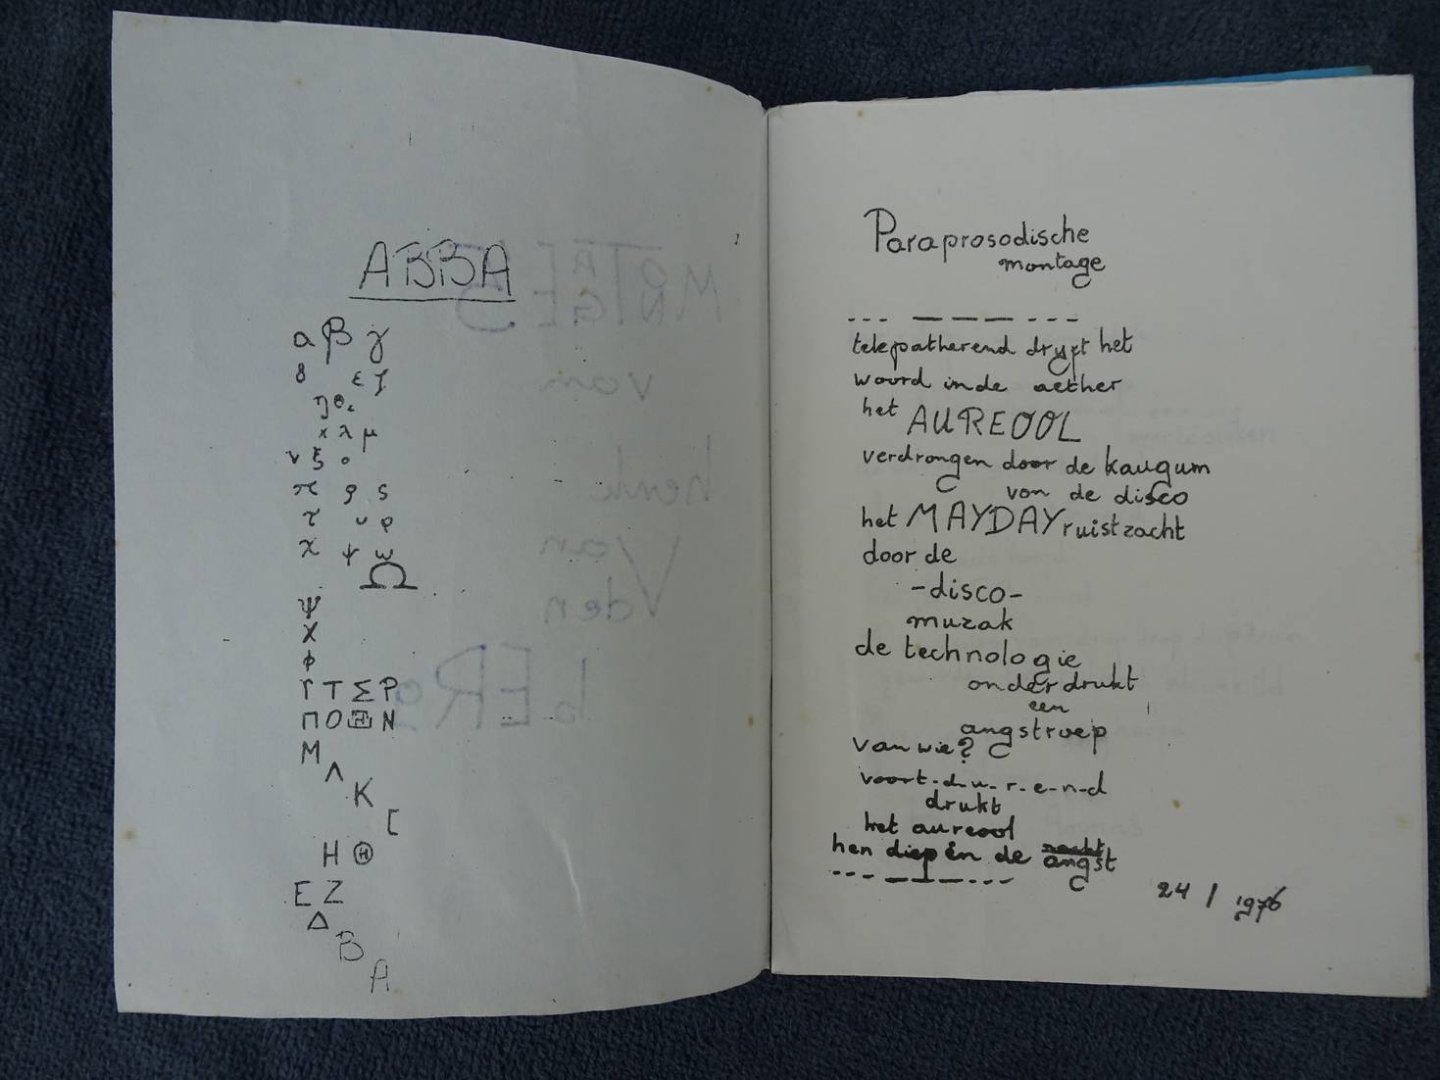 ABBA
α β γ
δ ε ζ
η θ ι
κ λ μ
ν ξ ο
π ρ ς
τ υ φ
χ ψ ω
Ω
Ψ
Χ
Φ
Υ Τ Σ Ρ
Π Ο Ξ Ν
Μ
Λ
Κ
Η Θ
Ε Ζ
Δ
Β
Α
Paraprosodische
montage
--- — — — ---
telepatherend dryft het
woord in de aether
het AUREOOL
verdrongen door de kaugum
von de disco
het MAYDAY ruist zacht
door de
-disco-
muzak
de technologie
onderdrukt
een
angstroep
van wie?
voort-d-u-r-e-n-d
drukt
het aureool
hen diep in de angst
--- — — — ---
24 / 1976
MONTAGES
van
henk
Van
den
bERg